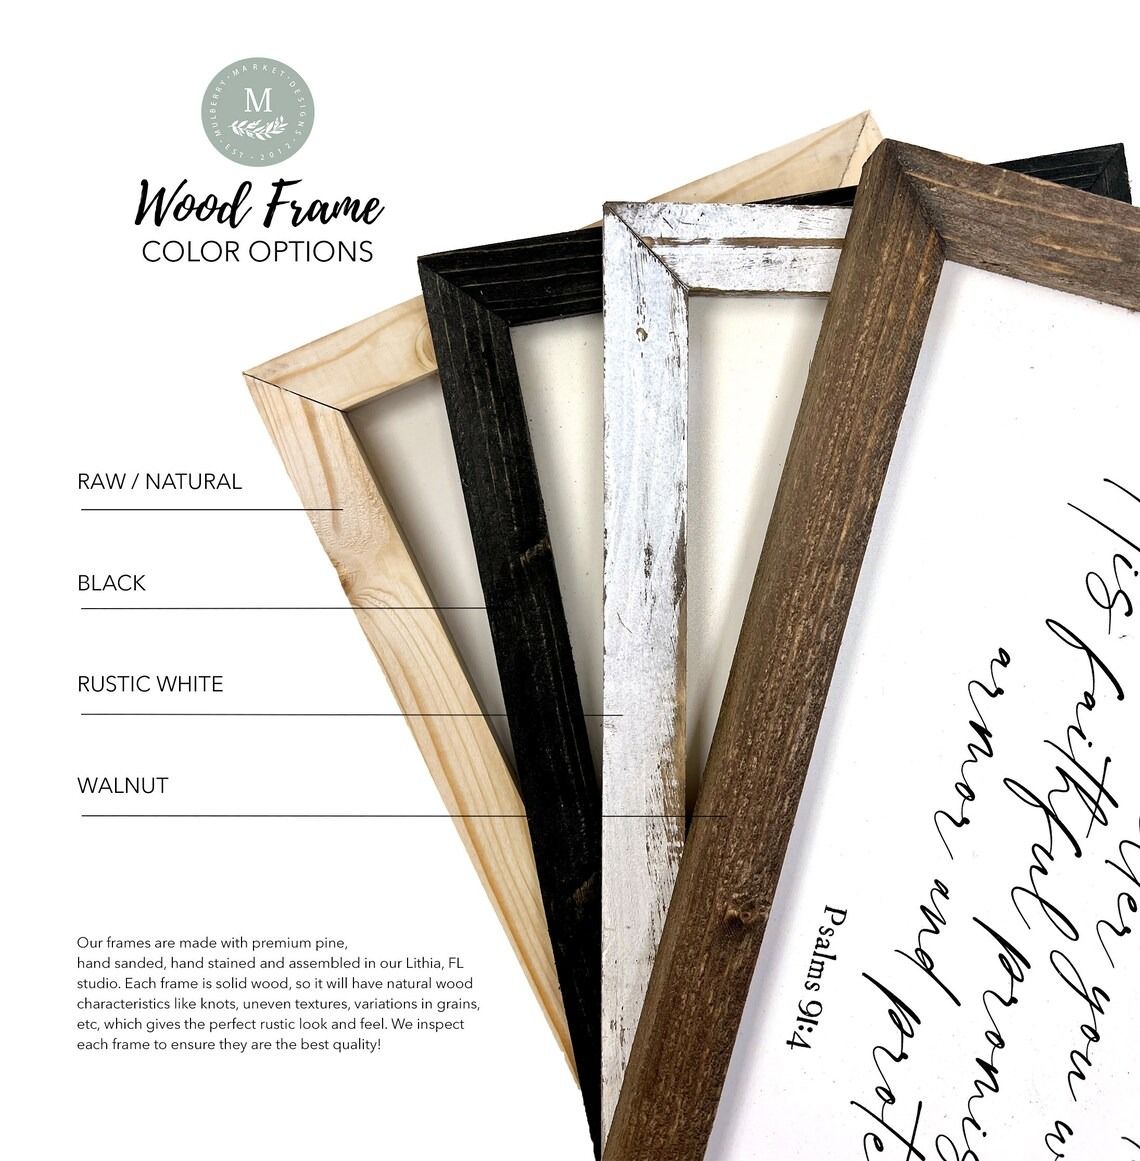 MULBERRY • MARKET • DESIGNS
M
• EST • 2012 •
Wood Frame
COLOR OPTIONS
RAW / NATURAL
BLACK
RUSTIC WHITE
WALNUT
Our frames are made with premium pine,
hand sanded, hand stained and assembled in our Lithia, FL
studio. Each frame is solid wood, so it will have natural wood
characteristics like knots, uneven textures, variations in grains,
etc, which gives the perfect rustic look and feel. We inspect
each frame to ensure they are the best quality!
you
His faithful
armor and
Psalms 91:4